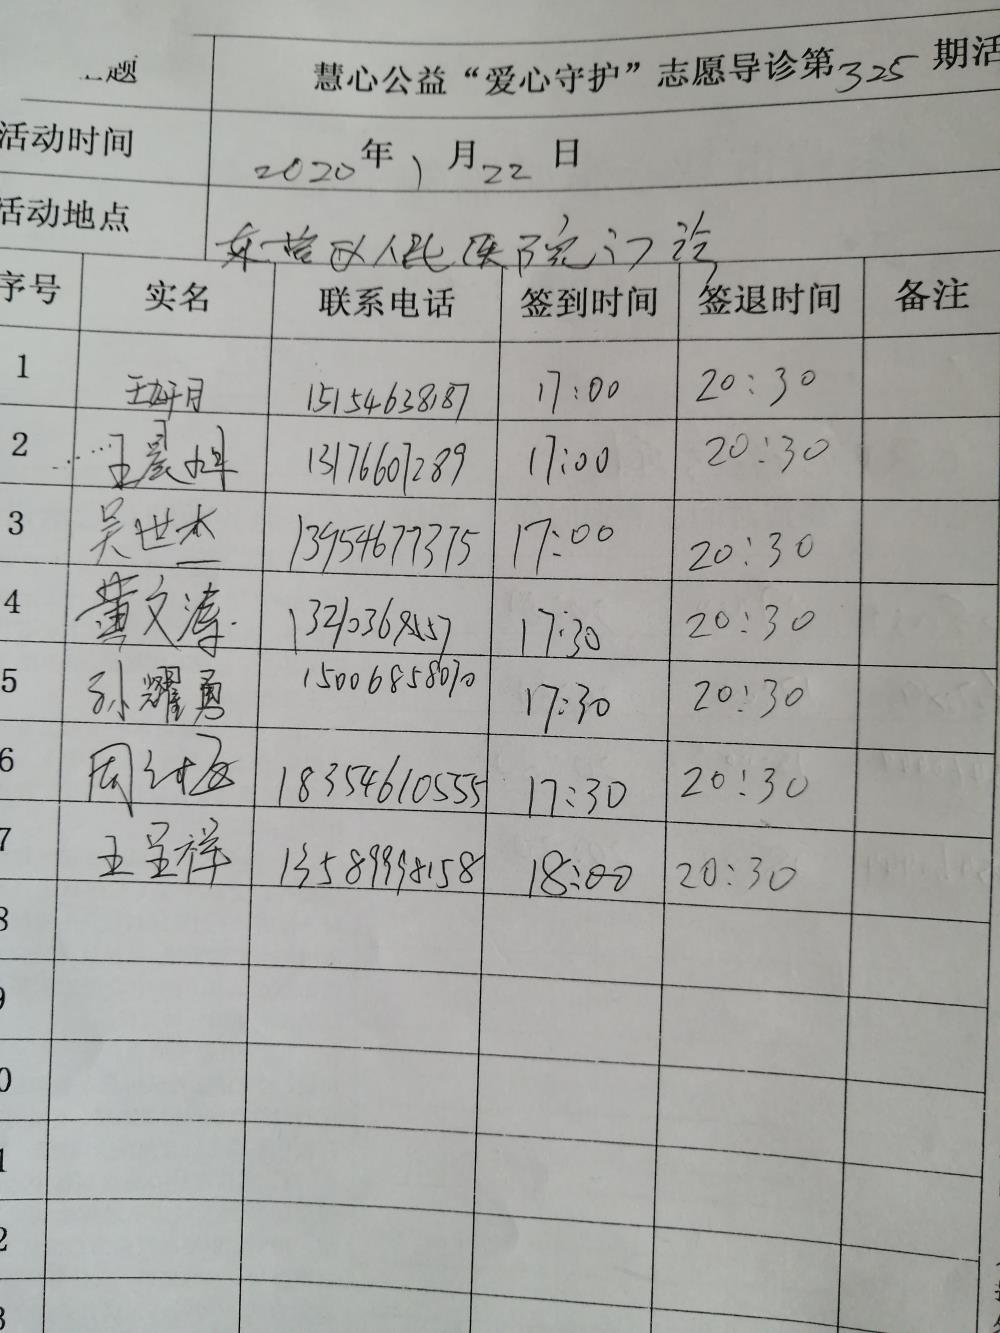 题 慧心公益“爱心守护”志愿导诊第325期活
活动时间 2020年1月22日
活动地点 东营区人民医院门诊
序号 实名 联系电话 签到时间 签退时间 备注
1 15154638187 17:00 20:30
2 王晨烨 13176607289 17:00 20:30
3 吴世杰 13954677375 17:00 20:30
4 黄文涛 17:30 20:30
5 孙耀勇 15006858070 17:30 20:30
6 周 18354610555 17:30 20:30
7 王呈祥 13589998158 18:00 20:30
8
9
0
1
2
3